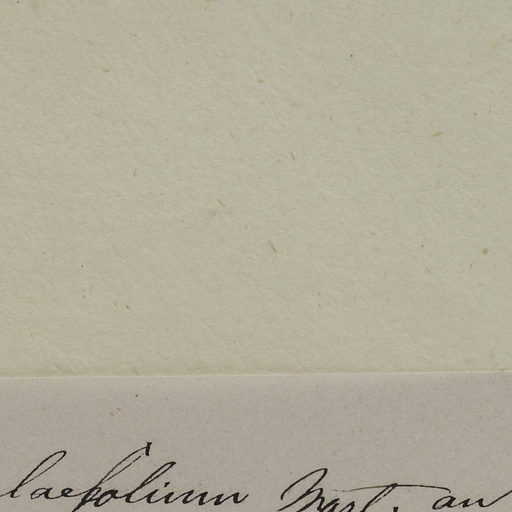 laefolium Mast. an